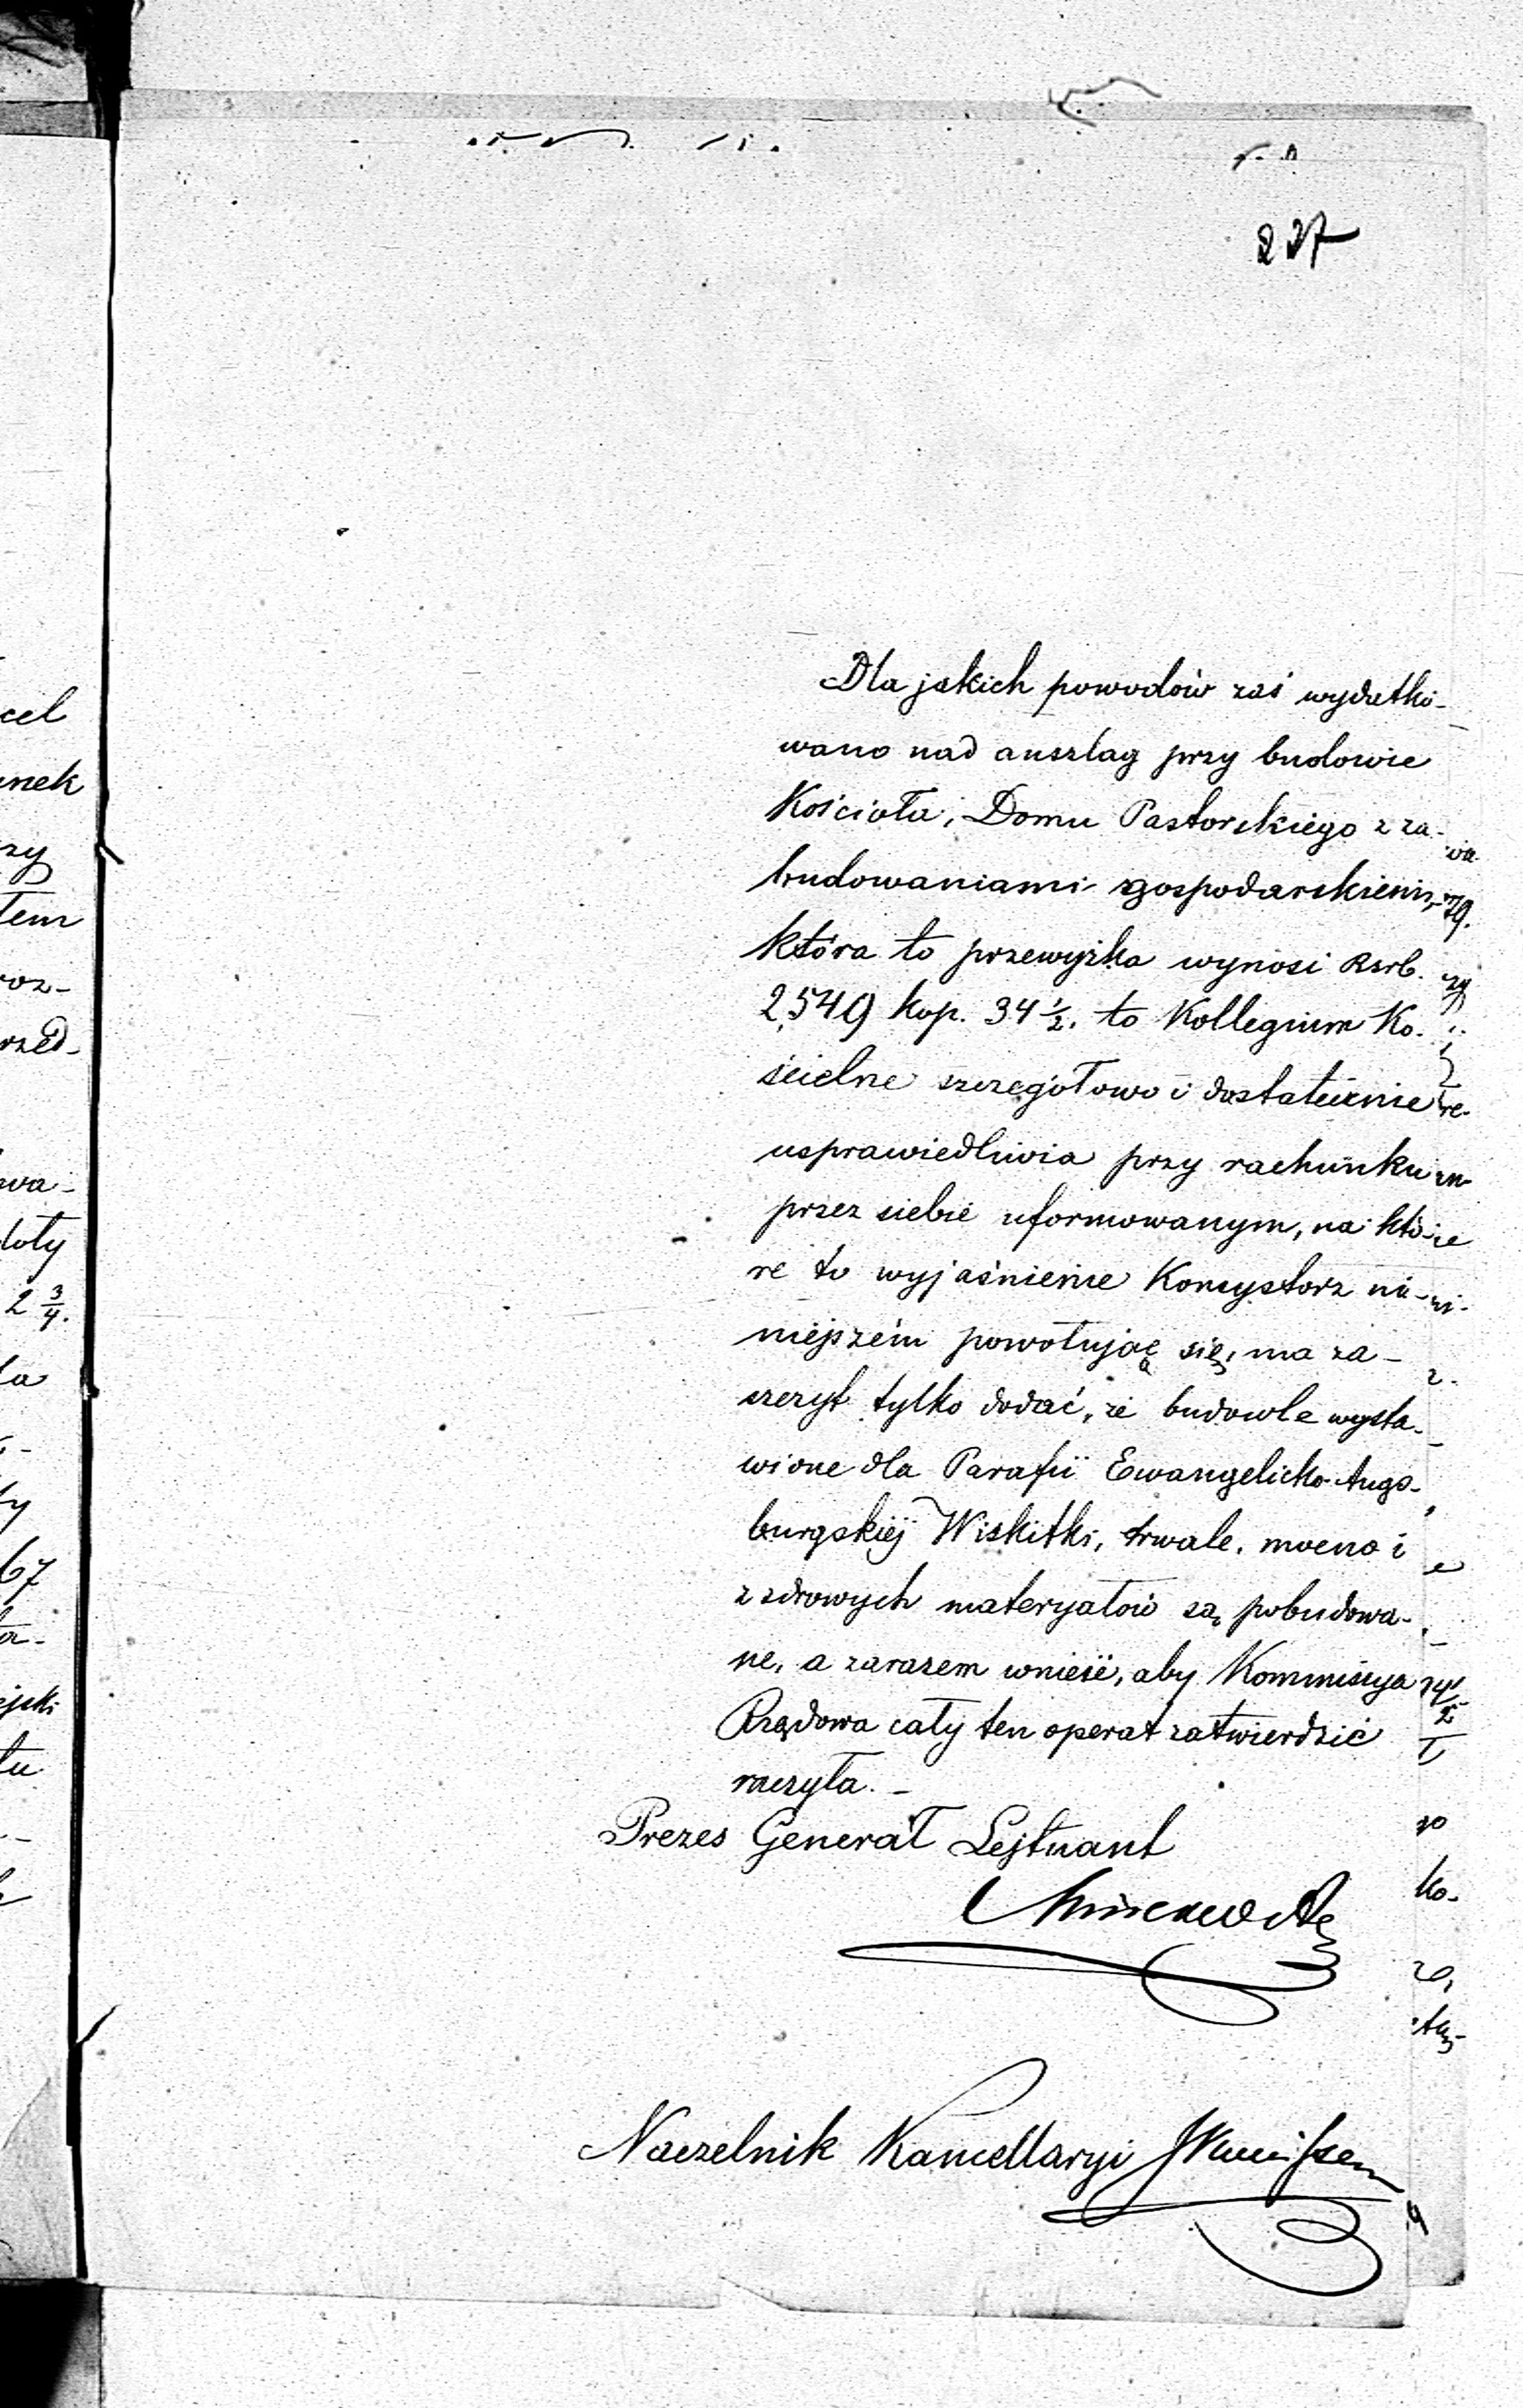 227
Dla jakich powodów zaś wydatko-
wano nad anszlag przy budowie
Kościoła, Domu Pastorskiego z za-
budowaniami gospodarskiemi,
która to przewyżka wynosi Rsrb.
2,549 kop. 34 ½. to Kollegium Ko-
ścielne szczegółowo i dostatecznie
usprawiedliwia przy rachunku
przez siebie uformowanym, na któ-
re to wyjaśnienie Konsystorz ni-
niejszém powołując się, ma za-
szczyt tylko dodać, że budowle wysta-
wione dla Parafii Ewangelicko-Augs-
burgskiéj Wiskitki, trwale, mocno i
z zdrowych materyałów są pobudowa-
ne, a zarazem wnieść, aby Kommissya
Rządowa cały ten operat zatwierdzić
raczyła. -
Prezes Generał Lejtnant
Naczelnik Kancellaryi
cel
unek
zy
łem
roz-
rzed-
wa-
łoty
2 ¾.
ła
ty
67
ta-
ejski
tu